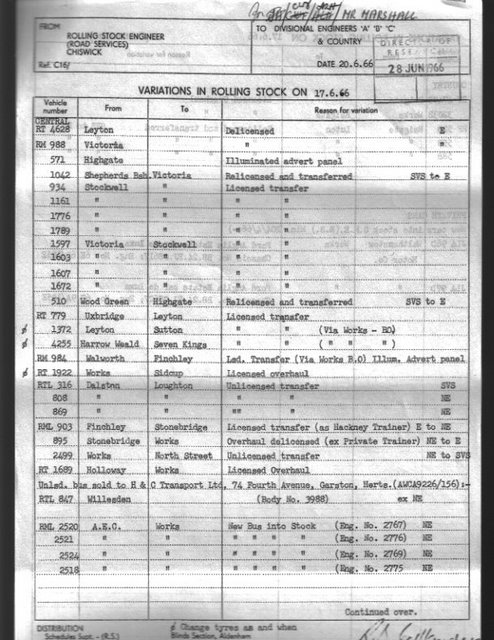 MR MARSHALL
FROM
ROLLING STOCK ENGINEER
(ROAD SERVICES)
CHISWICK
Ref. C16/
TO DIVISIONAL ENGINEERS 'A' 'B' 'C'
& COUNTRY
DATE 20.6.66
28 JUN 1966
VARIATIONS IN ROLLING STOCK ON 17.6.66
Vehicle number From To Reason for variation
CENTRAL
RT 4628 Leyton Delicensed E
RM 988 Victoria " "
571 Highgate Illuminated advert panel
1042 Shepherds Bsh. Victoria Relicensed and transferred SVS to E
934 Stockwell " Licensed transfer
1161 " " " "
1776 " " " "
1789 " " " "
1597 Victoria Stockwell " "
1603 " " " "
1607 " " " "
1672 " " " "
510 Wood Green Highgate Relicensed and transferred SVS to E
RT 779 Uxbridge Leyton Licensed transfer
ø 1372 Leyton Sutton " " (Via Works - RO)
ø 4255 Harrow Weald Seven Kings " " ( " " " )
RM 984 Walworth Finchley Lsd. Transfer (Via Works R.O) Illum. Advert panel
ø RT 1922 Works Sidcup Licensed overhaul
RTL 316 Dalston Loughton Unlicensed transfer SVS
808 " " " " NE
869 " " " " NE
RML 903 Finchley Stonebridge Licensed transfer (as Hackney Trainer) E to NE
895 Stonebridge Works Overhaul delicensed (ex Private Trainer) NE to E
2499 Works North Street Unlicensed transfer NE to SVS
RT 1689 Holloway Works Licensed Overhaul
Unlsd. bus sold to H & C Transport Ltd, 74 Fourth Avenue, Garston, Herts.(AWCA9226/156):-
RTL 847 Willesden (Body No. 3988) ex NE
RML 2520 A.E.C. Works New Bus into Stock (Eng. No. 2767) NE
2521 " " " " " " (Eng. No. 2776) NE
2524 " " " " " " (Eng. No. 2769) NE
2518 " " " " " " (Eng. No. 2775 NE
Continued over.
DISTRIBUTION
Schedules Supt. - (R.S.)
ø Change tyres as and when
Blinds Section, Aldenham